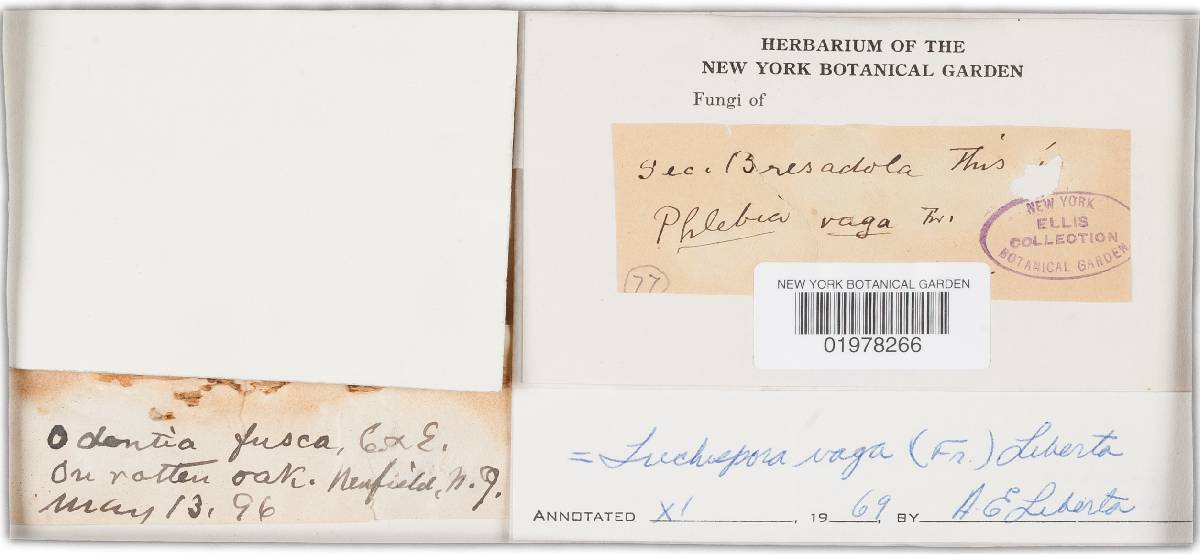 HERBARIUM OF THE
NEW YORK BOTANICAL GARDEN
Fungi of
Sec. Bresadola This
Phlebia vaga Fr.
77
NEW YORK
ELLIS
COLLECTION
BOTANICAL GARDEN
NEW YORK BOTANICAL GARDEN
01978266
Odontia fusca, C & E.
On rotten oak. Newfield, N.J.
May 13. 96
= Trechispora vaga (Fr.) Liberta
ANNOTATED XI, 1969, BY A E Liberta